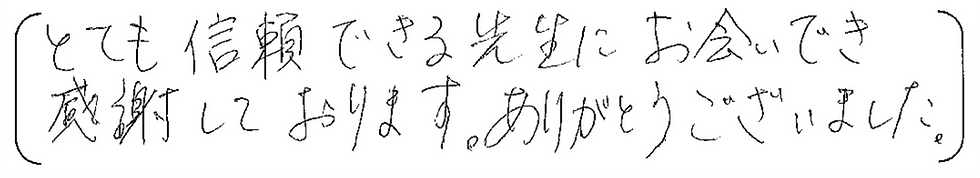 とても信頼できる先生にお会いでき
感謝しております。ありがとうございました。